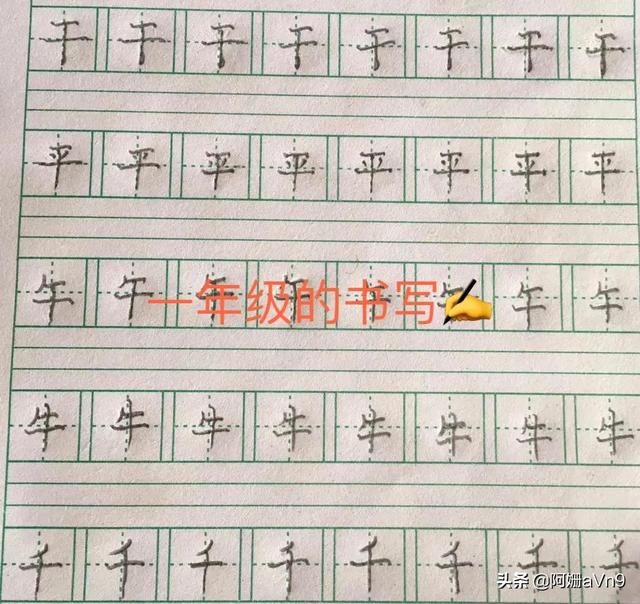 干干干干干干干干
平平平平平平平平
午午午午午午午午
一年级的书写✍
牛牛牛牛牛牛牛牛
千千千千千千千千
头条 @阿姗aVn9